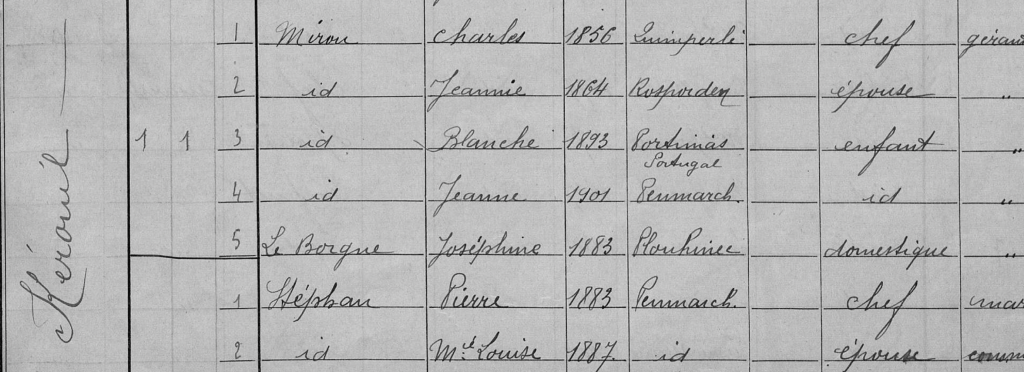 Kérouil
1 Mirou Charles 1856 Quimperlé chef géran
2 id Jeannie 1864 Rosporden épouse "
1 1 3 id Blanche 1893 Portimás enfant "
Portugal
4 id Jeanne 1901 Penmarch. id "
5 Le Borgne Joséphine 1883 Plouhinec domestique "
1 Stéphan Pierre 1883 Penmarch chef mar
2 id Mie Louise 1887 id épouse